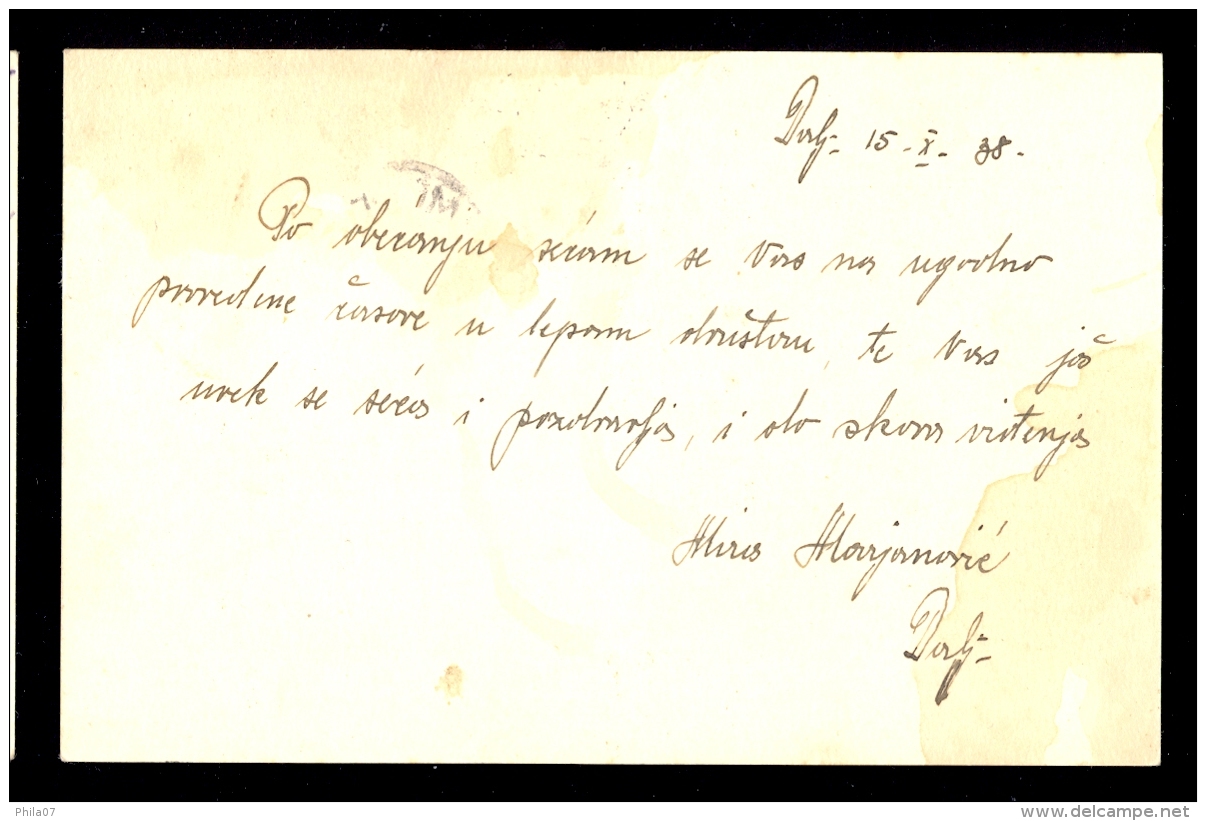 Dalj- 15-X-38-
Po obećanju sećam se Vas na ugodno
provedene časove u lepom društvu, te Vas još
uvek se seća i pozdravlja, i do skora viđenja
Mira Marjanović
Dalj-
Phila07
www.delcampe.net